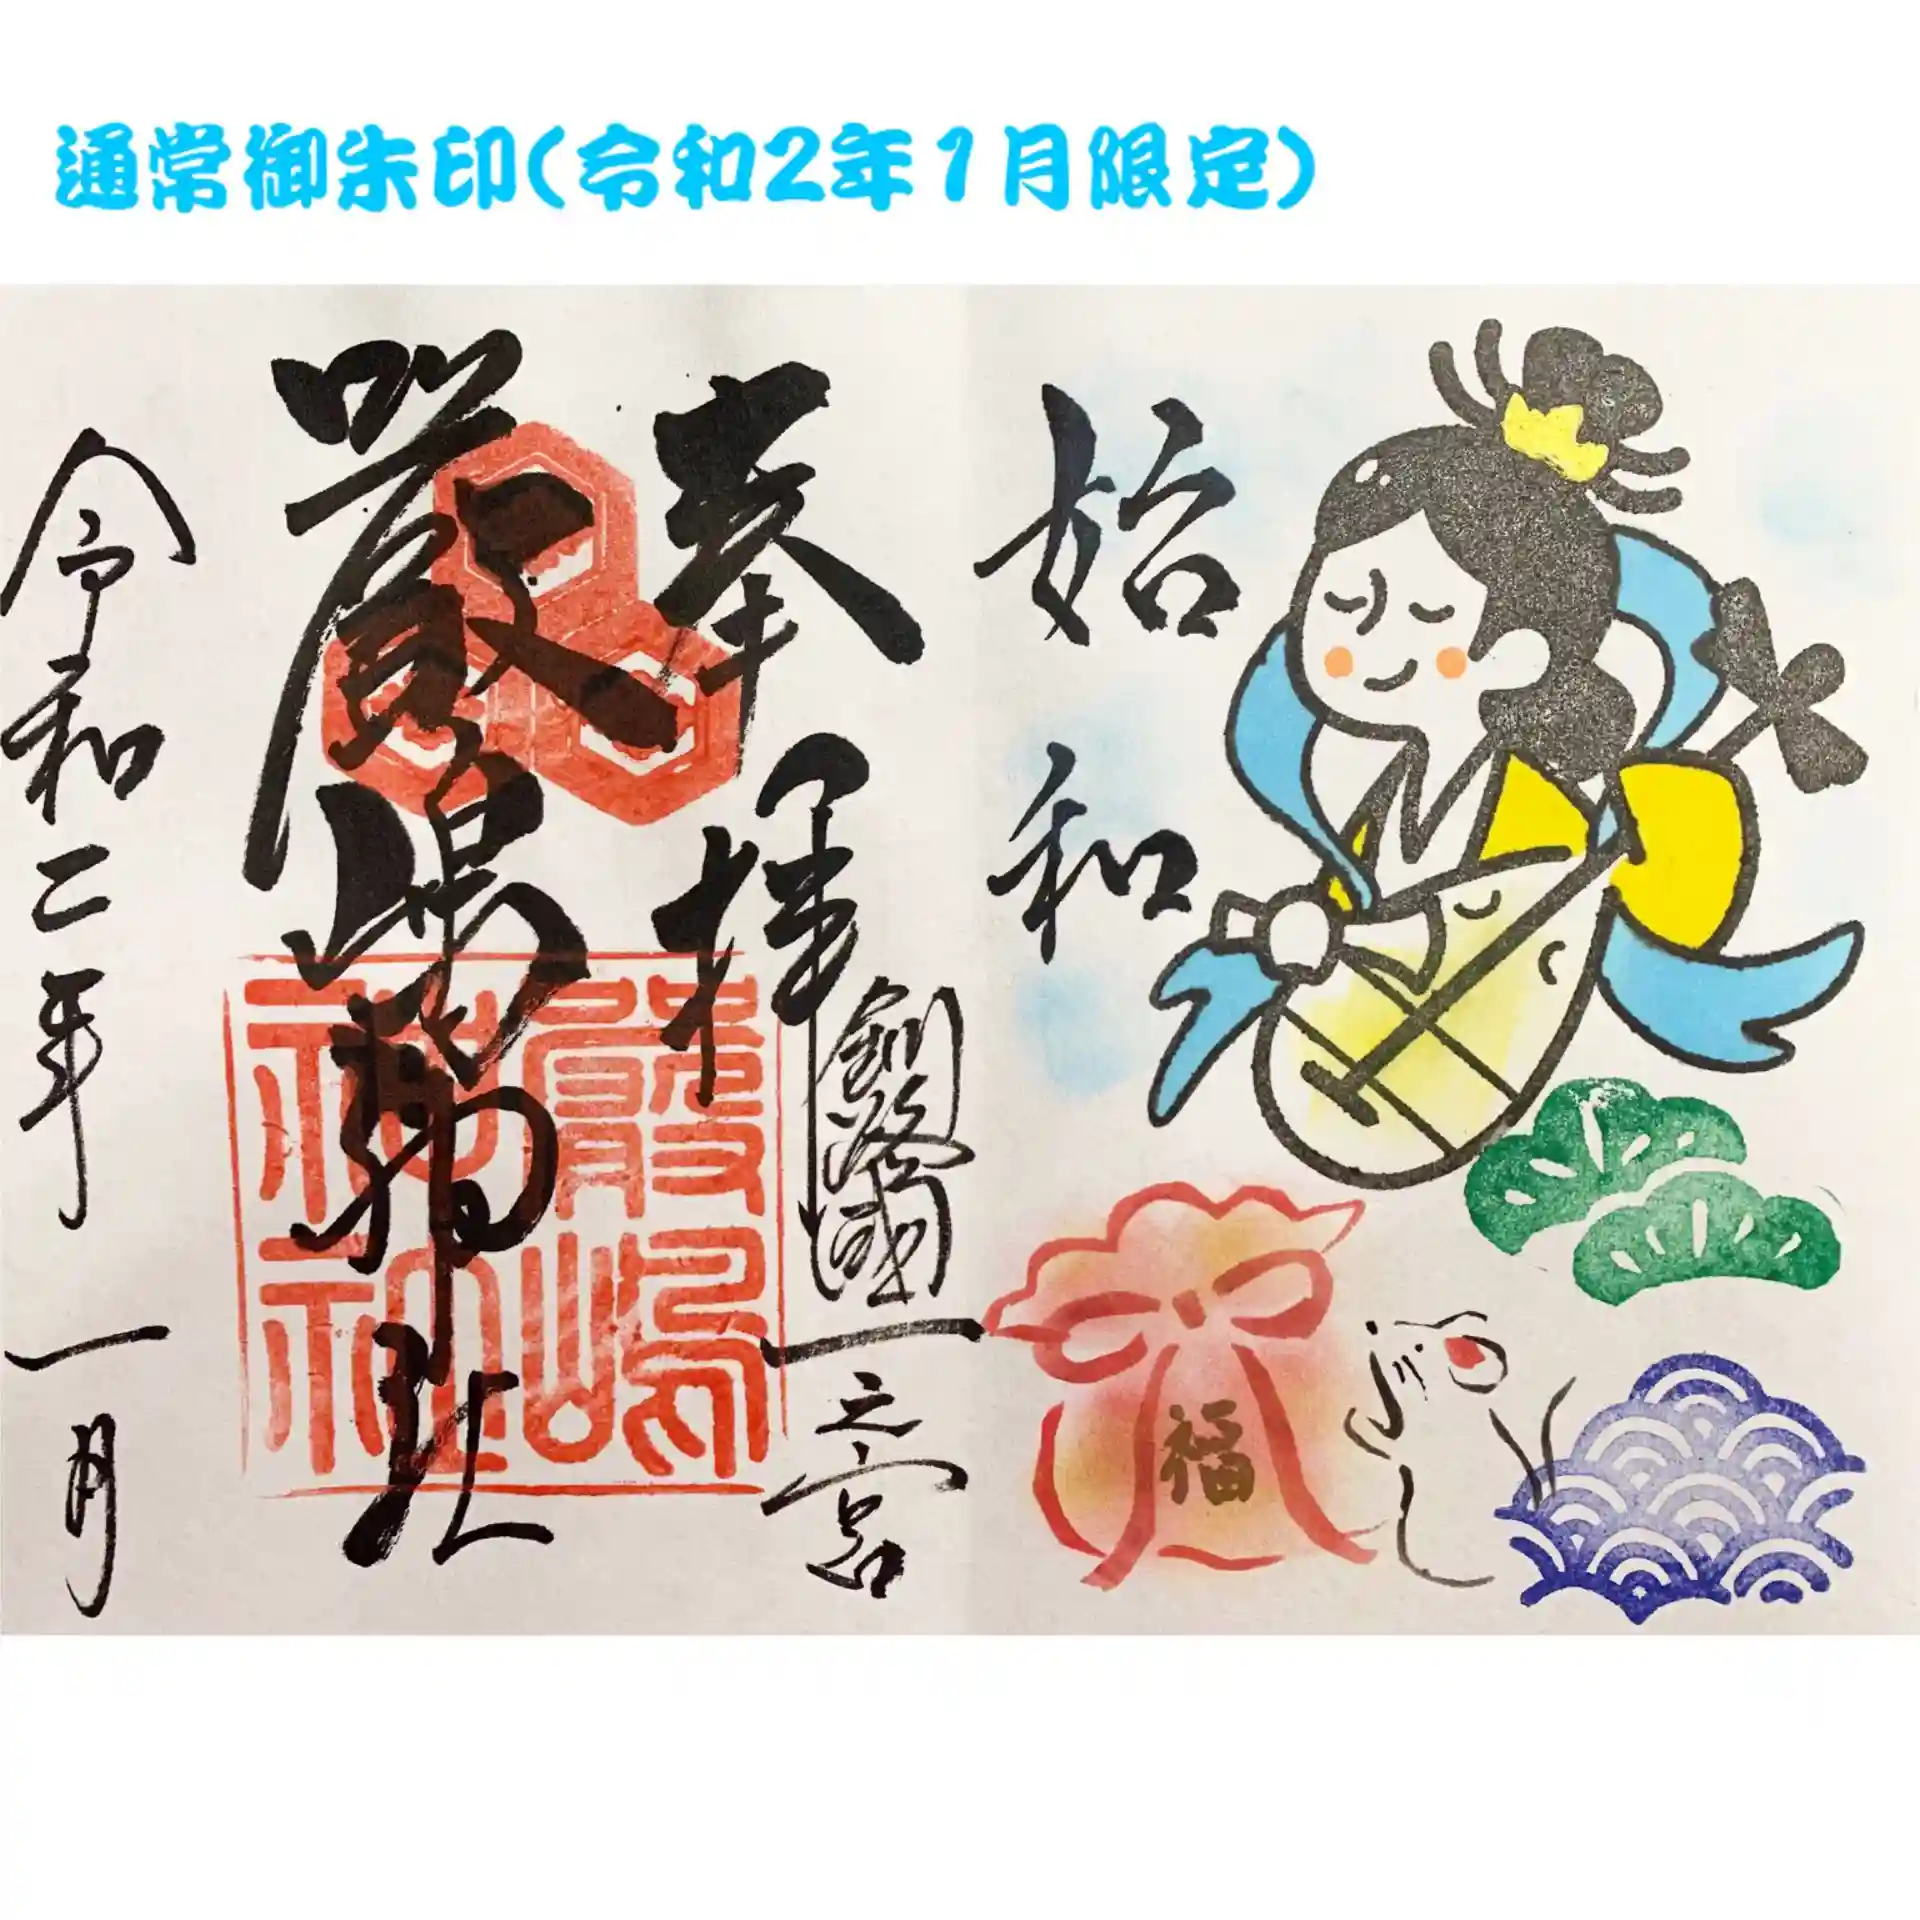 通常御朱印(令和2年1月限定)
始和
福
奉拝
釧路國一之宮
厳嶋神社
厳嶋神社
令和二年一月